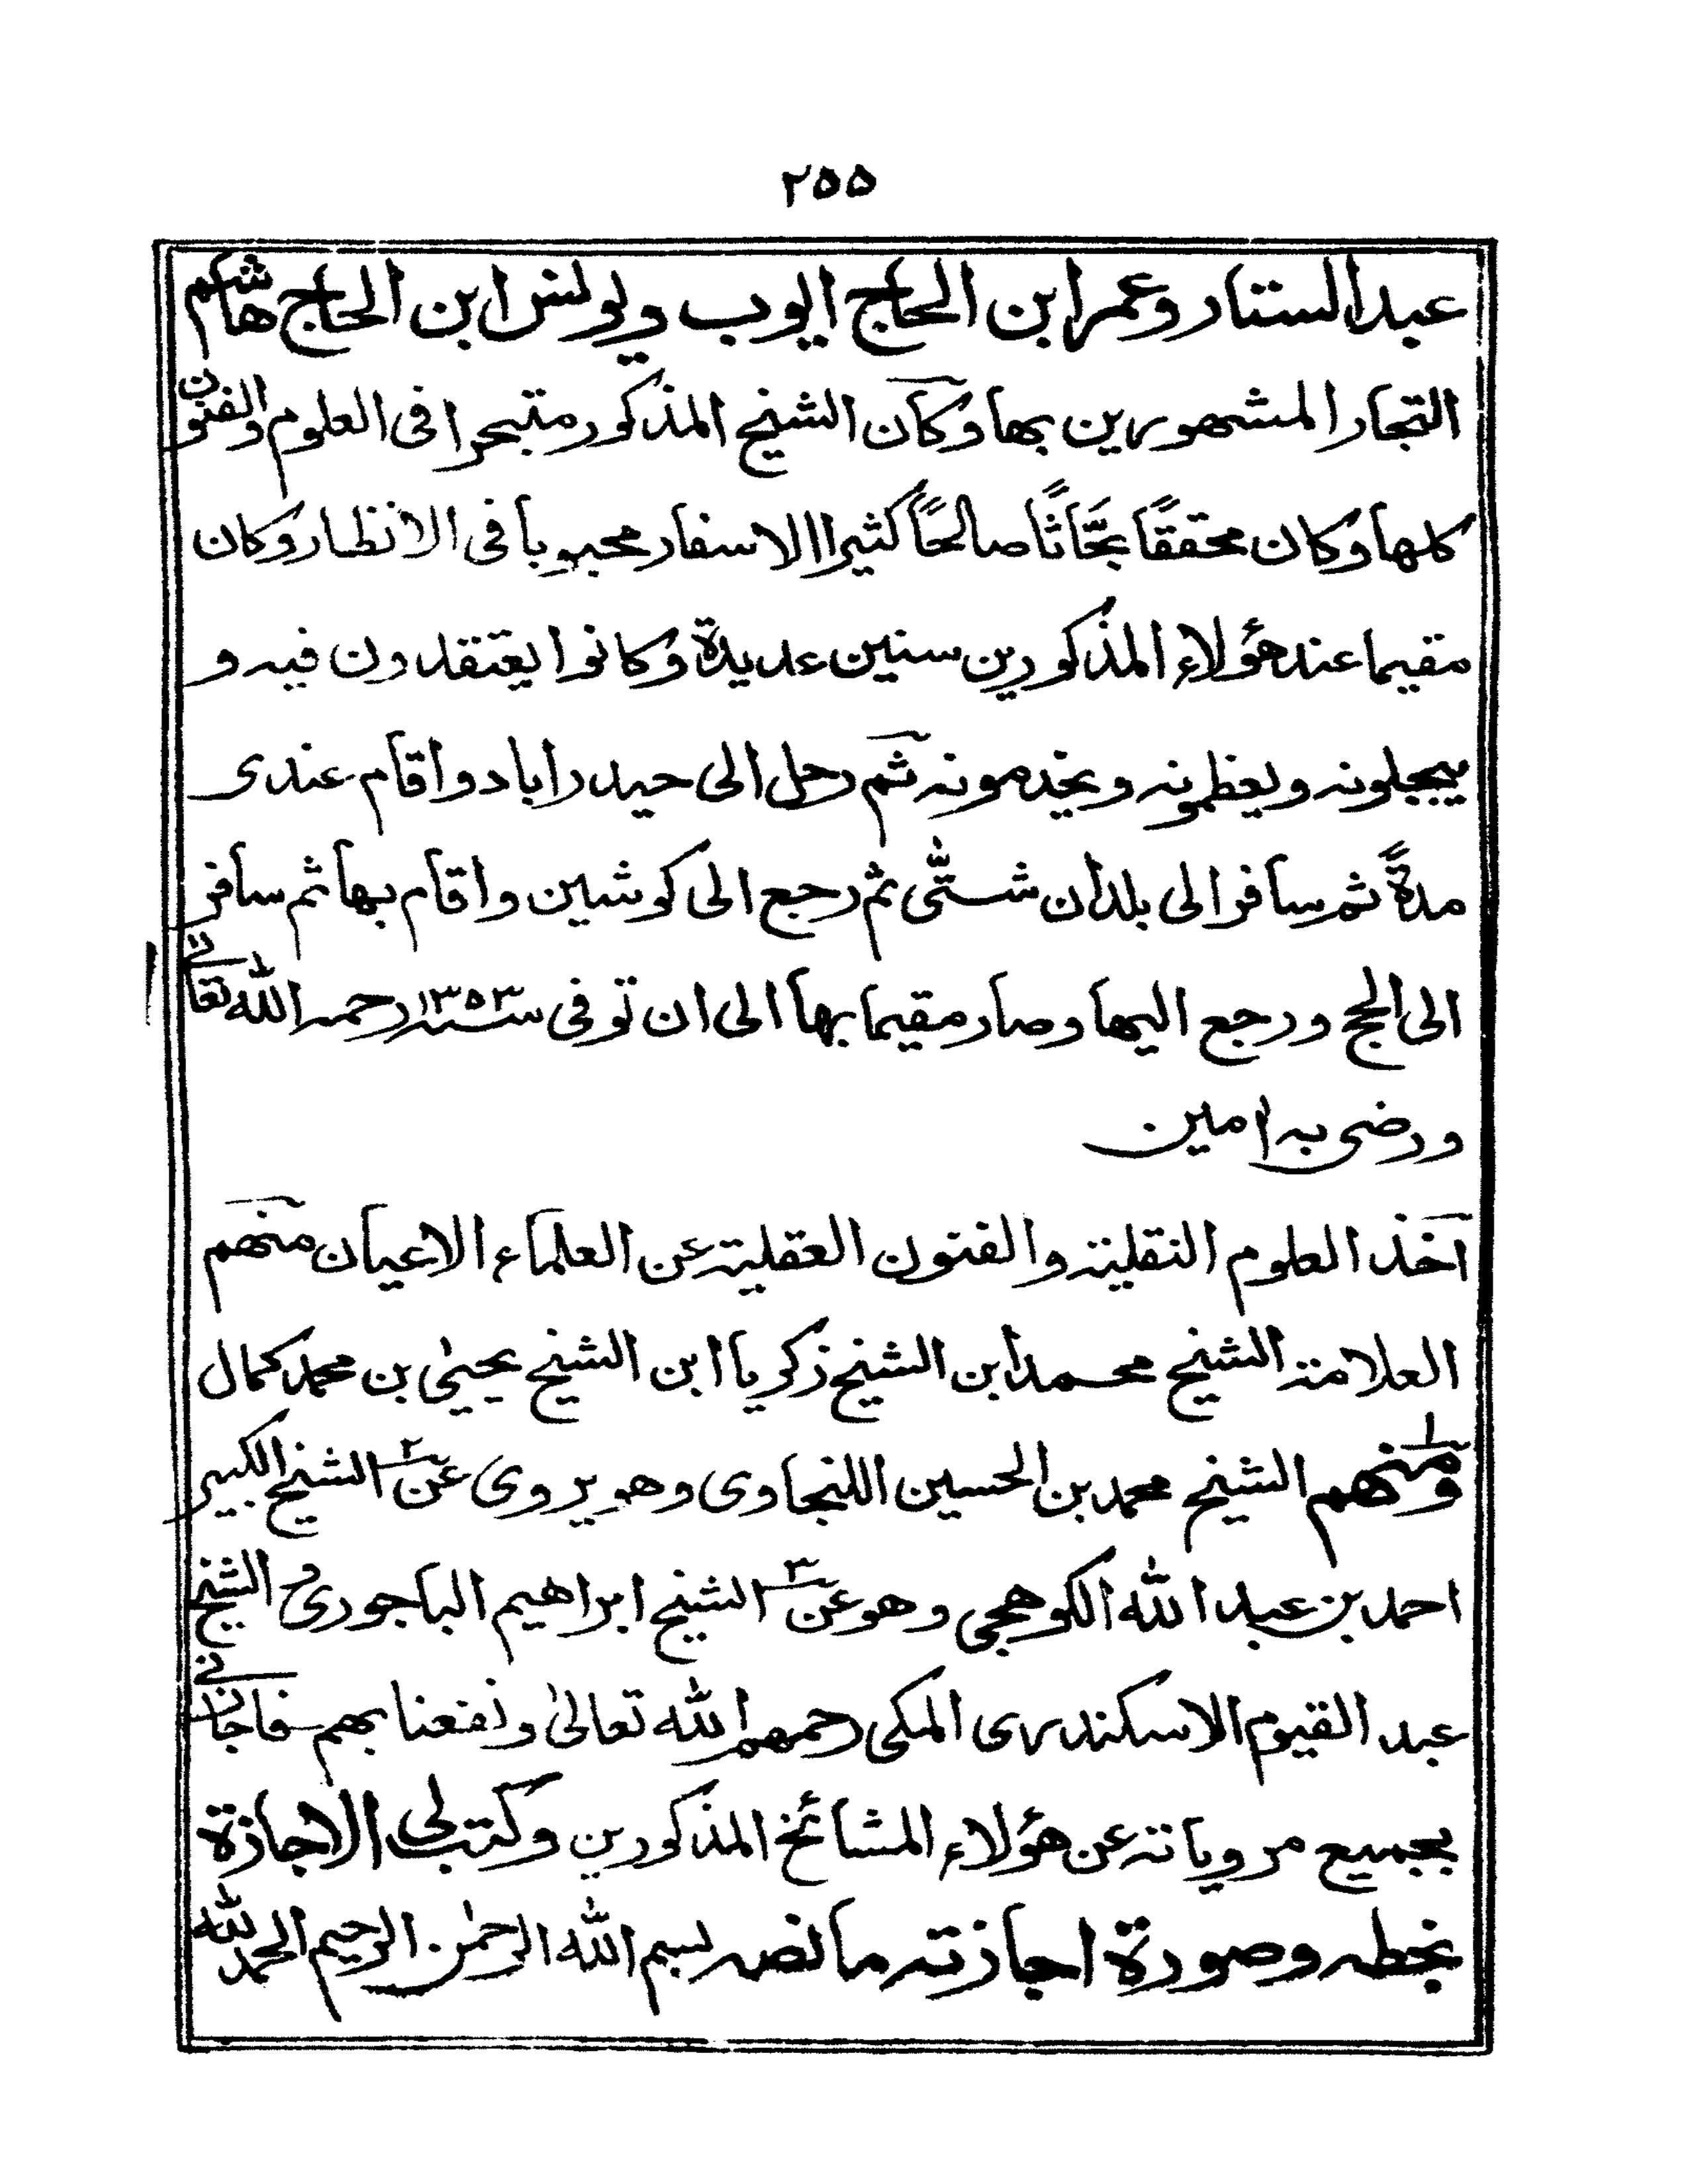 ٢٥٥
عبد الستار وعمر ابن الحاج ايوب ويونس ابن الحاج هاشم
التجار المشهورين بها وكان الشيخ المذكور متبحرا فى العلوم والفنون
كلها وكان محققًا بحَّاثًا صالحًا كثيرا الاسفار محبوبا فى الانظار وكان
مقيما عند هؤلاء المذكورين سنين عديدة وكانوا يعتقدون فيه و
يبجلونه ويعظمونه ويخدمونه ثم رحل الى حيدراباد واقام عندى
مدةً ثم سافر الى بلدان شتّٰى ثم رجع الى كوشين واقام بها ثم سافر
الى الحج ورجع اليها وصار مقيما بها الى ان توفى سنة ١٣٥٣ رحمه الله تعالى
ورضى به امين
اخذ العلوم النقلية والفنون العقلية عن العلماء الاعيان منهم
العلامة الشيخ محمد ابن الشيخ زكريا ابن الشيخ يحيىٰ بن محمد كمال
١ ومنهم الشيخ محمد بن الحسين اللنجاوى وهو يروى عن ٢ الشيخ الكبير
احمد بن عبد الله الكوهجى وهو عن ٣ الشيخ ابراهيم الباجورى و الشيخ
عبد القيوم الاسكندرى المكى رحمهم الله تعالىٰ ونفعنا بهم فاجازنى
بجميع مروياته عن هؤلاء المشائخ المذكورين وكتب لى الاجازة
بخطه وصورة اجازته ما نصه بسم الله الرحمٰن الرحيم الحمد لله